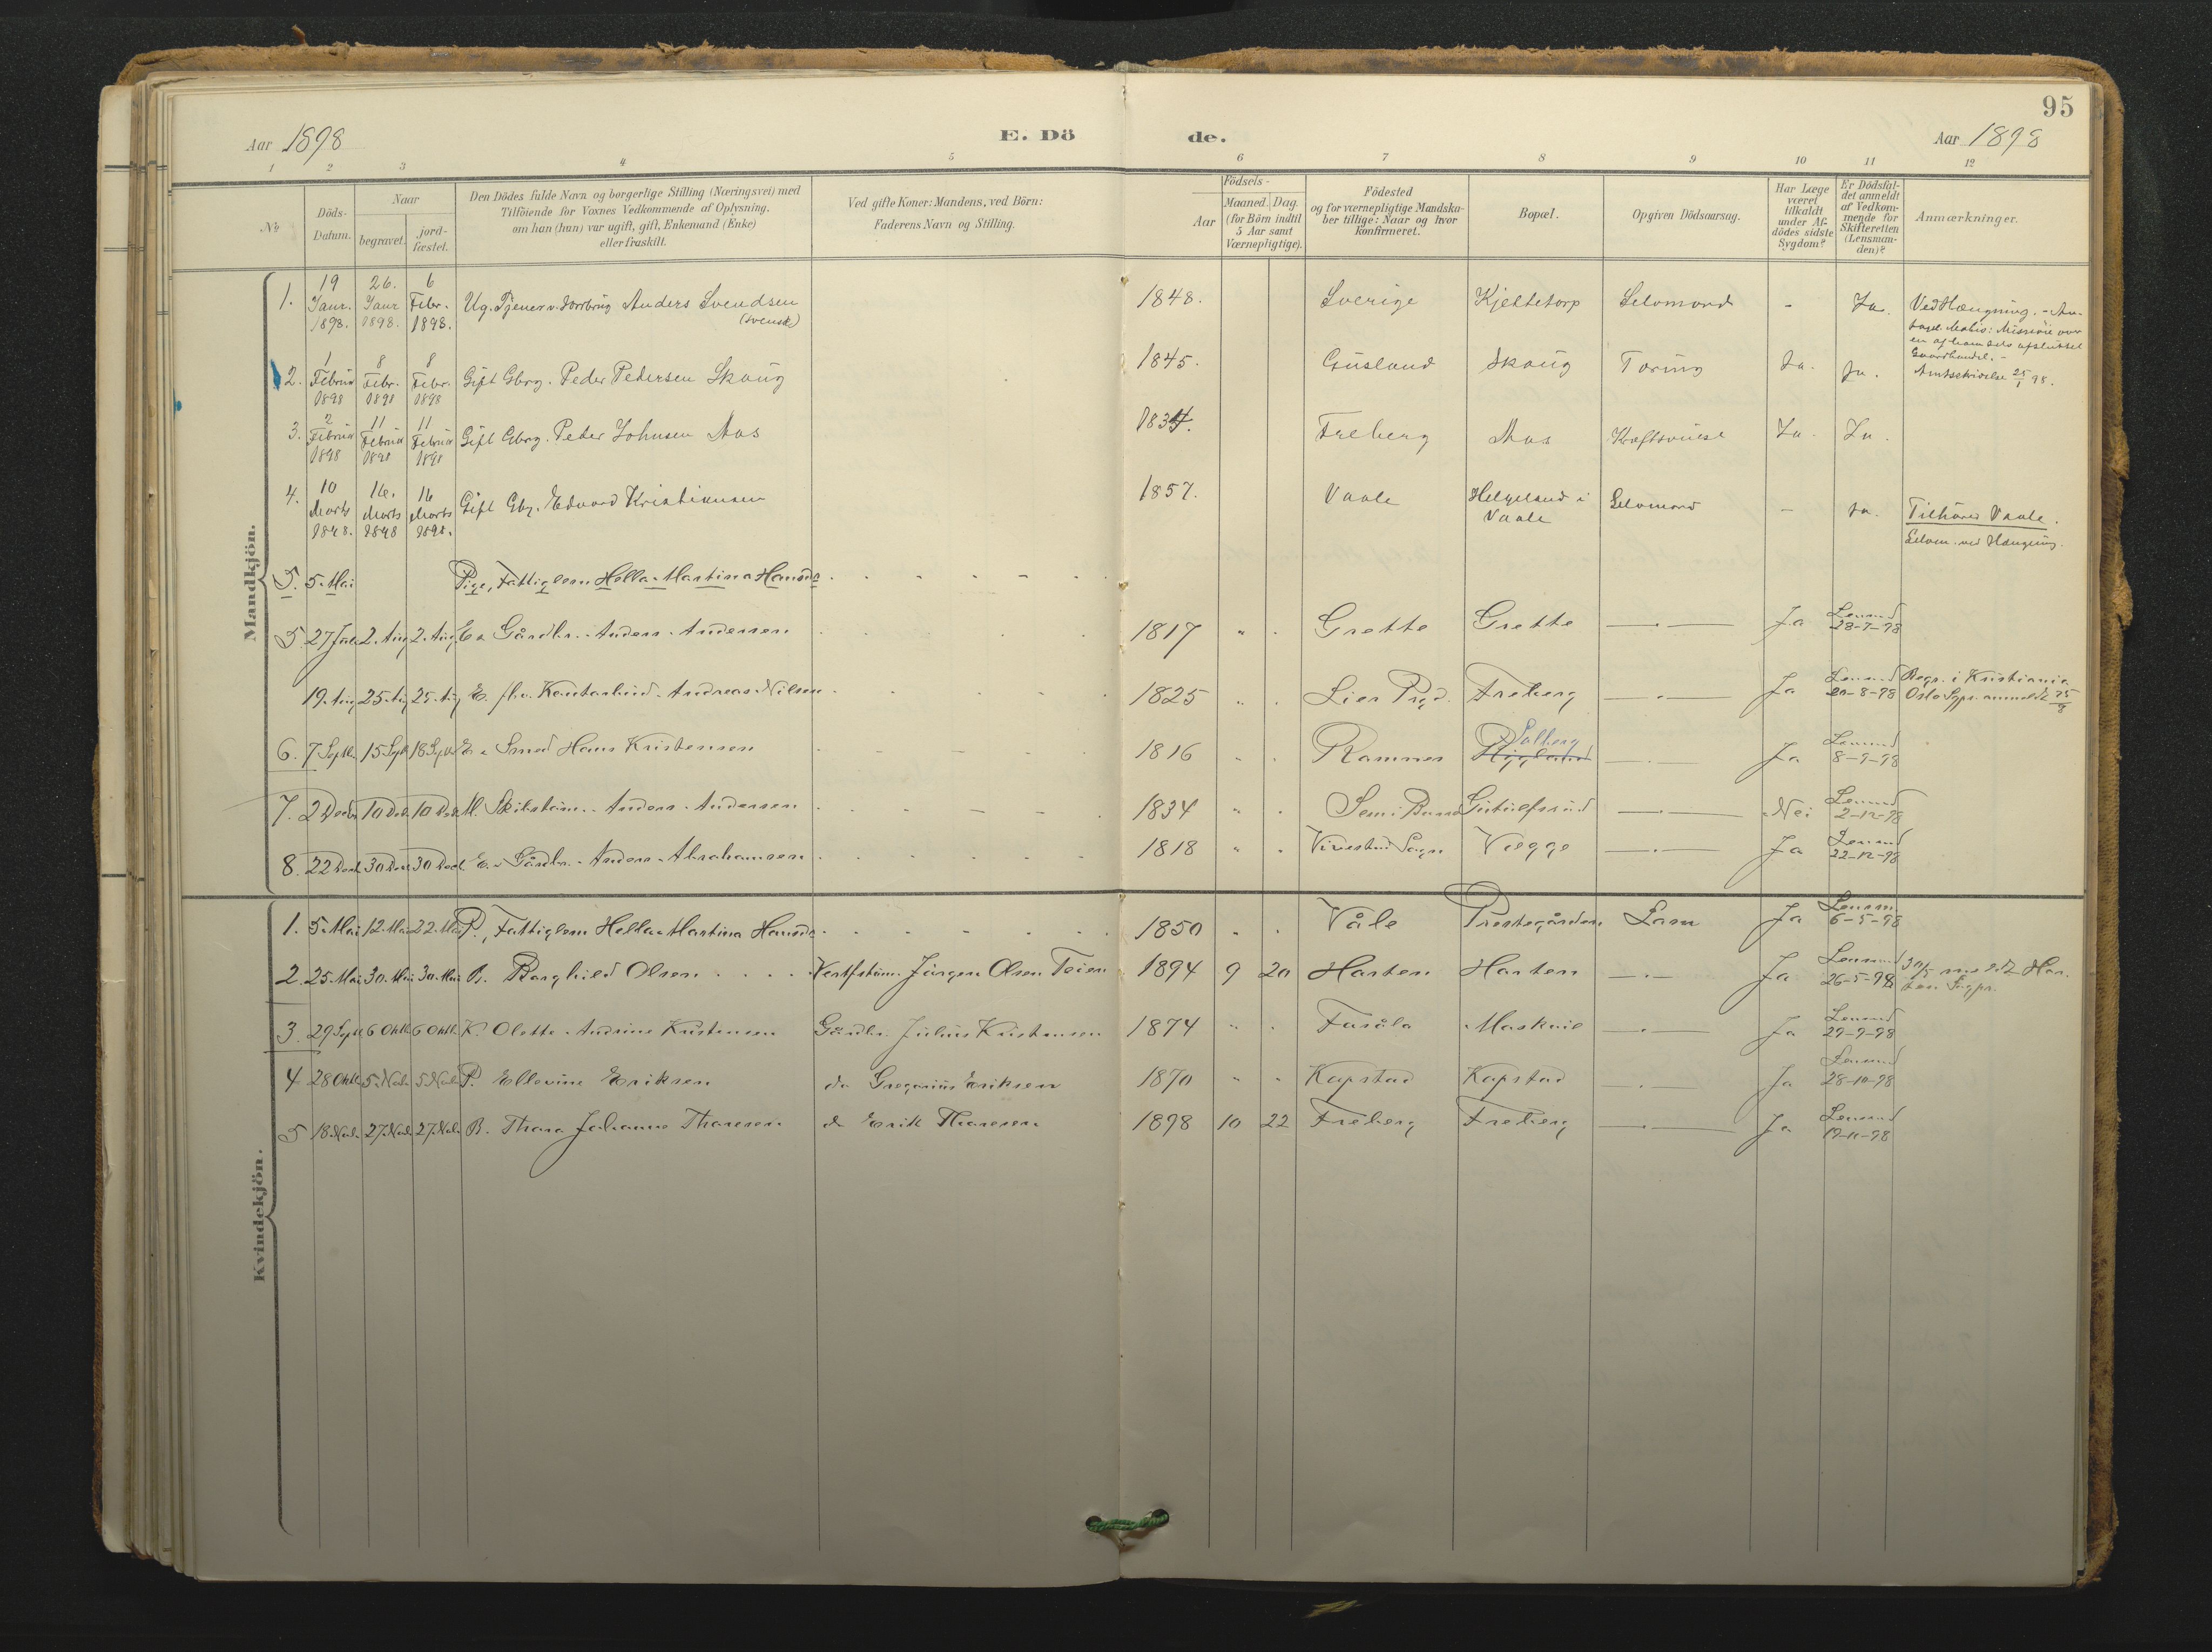 95
Aar 1898 E. Dö de. Aar 1898
1 2 3 4 5 6 7 8 9 10 11 12
No
Döds-Datum.
Naar
begravet. jordfæstet.
Den Dödes fulde Navn og borgerlige Stilling (Næringsvei) med
Tilföiende for Voxnes Vedkommende af Oplysning,
om han (hun) var ugift, gift, Enkemand (Enke)
eller fraskilt.
Ved gifte Koner: Mandens, ved Börn:
Faderens Navn og Stilling.
Födsels-
Aar Maaned. Dag.
(for Börn indtil
5 Aar samt
Værnepligtige).
Födested
og for værnepligtige Mandska-
ber tillige: Naar og hvor
Konfirmeret.
Bopæl.
Opgiven Dödsaarsag.
Har Læge
været
tilkaldt
under Af-
dödes sidste
Sygdom?
Er Dödsfal-
det anmeldt
af Vedkom-
mende for
Skifteretten
(Lensman-
den)?
Anmærkninger.
Mandkjön.
1. 19 Janr. 1898. 26. Janr 1898. 6 Febr. 1898. Ug. Anders Svendsen (svensk) 1848. Sverige Kjeltetorp Selvmord - Ja. Ved Hængning.
Amtsskrivelse 25/1 98.
2. 1 Februar 1898 8 Febr. 1898 8 Febr. 1898 Gift Gbrg. Peder Pedersen Skoug 1845. Gusland Skoug Tæring Ja. Ja.
3. 2 Februar 1898 11 Februar 1898 11 Februar 1898 Gift Gbrg. Peder Johnsen Aas 1834. Freberg Aas Ja. Ja.
4. 10 Marts 1898. 16. Marts 1898 16 Marts 1898. Gift Gbr. Edvard Kristiansen 1857. Vaale Helgeland i Vaale Selvmord - Ja. Tilhører Vaale.
Selvm. ved Hængning.
5. 5. Mai Pige, Fattiglem Hella Martina Hansdr
5 27 Juli 2. Aug 2. Aug E. Gårdbr. Anders Andersen 1817 " " Grette Grette —.— Ja Lensmd 28-7-98
19. Aug 25. Aug 25. Aug E. fhv. Andreas Nilsen 1825 " " Lier Prgd. Freberg —.— Ja Lensmd 20-8-98 Begr. i Kristiania
Oslo Sgpr. anmeldt 25/8
6. 7 Septbr 15 Septb 18 Septb E. Smed Hans Kristensen 1816 " " Ramnes Solberg —.— Ja Lensmd 8-9-98
7. 2 Decbr 10 Dcb. 10 Dcb. M. Skibstöm. Anders Andersen 1834 " " Sem i Ramnes —.— Nei Lensmd 2-12-98
8. 22 Decb 30 Decb 30 Decb. E. Gårdbr. Anders Abrahamsen 1818 " " Vivestad Sogn Vegge —.— Ja Lensmd 22-12-98
Kvindekjön.
1. 5. Mai 12. Mai 22. Mai P., Fattiglem Hella Martina Hansdr 1850 " " Våle Prestegården Lam Ja Lensm 6-5-98
2. 25. Mai 30. Mai 30. Mai B. Borghild Olsen Jörgen Olsen Teien 1894 9 20 Horten Horten —.— Ja Lensmd 26-5-98
3. 29 Septb 6 Oktb 6 Oktb. K. Olette Andrine Kristensen Gårdbr. Julius Kristensen 1874 " " Fusåla —.— Ja Lensmd 29-9-98
4 28 Oktb 5. Novb. 5 Novb P. Ellevine Eriksen do Gregorius Eriksen 1870 " " Kapstad Kapstad —.— Ja Lensmd 28-10-98
5 18 Novb. 27 Novb 27 Novb. B. Thora Johanne Thoresen do Erik Thoresen 1898 10 22 Freberg Freberg —.— Ja Lensmd 19-11-98